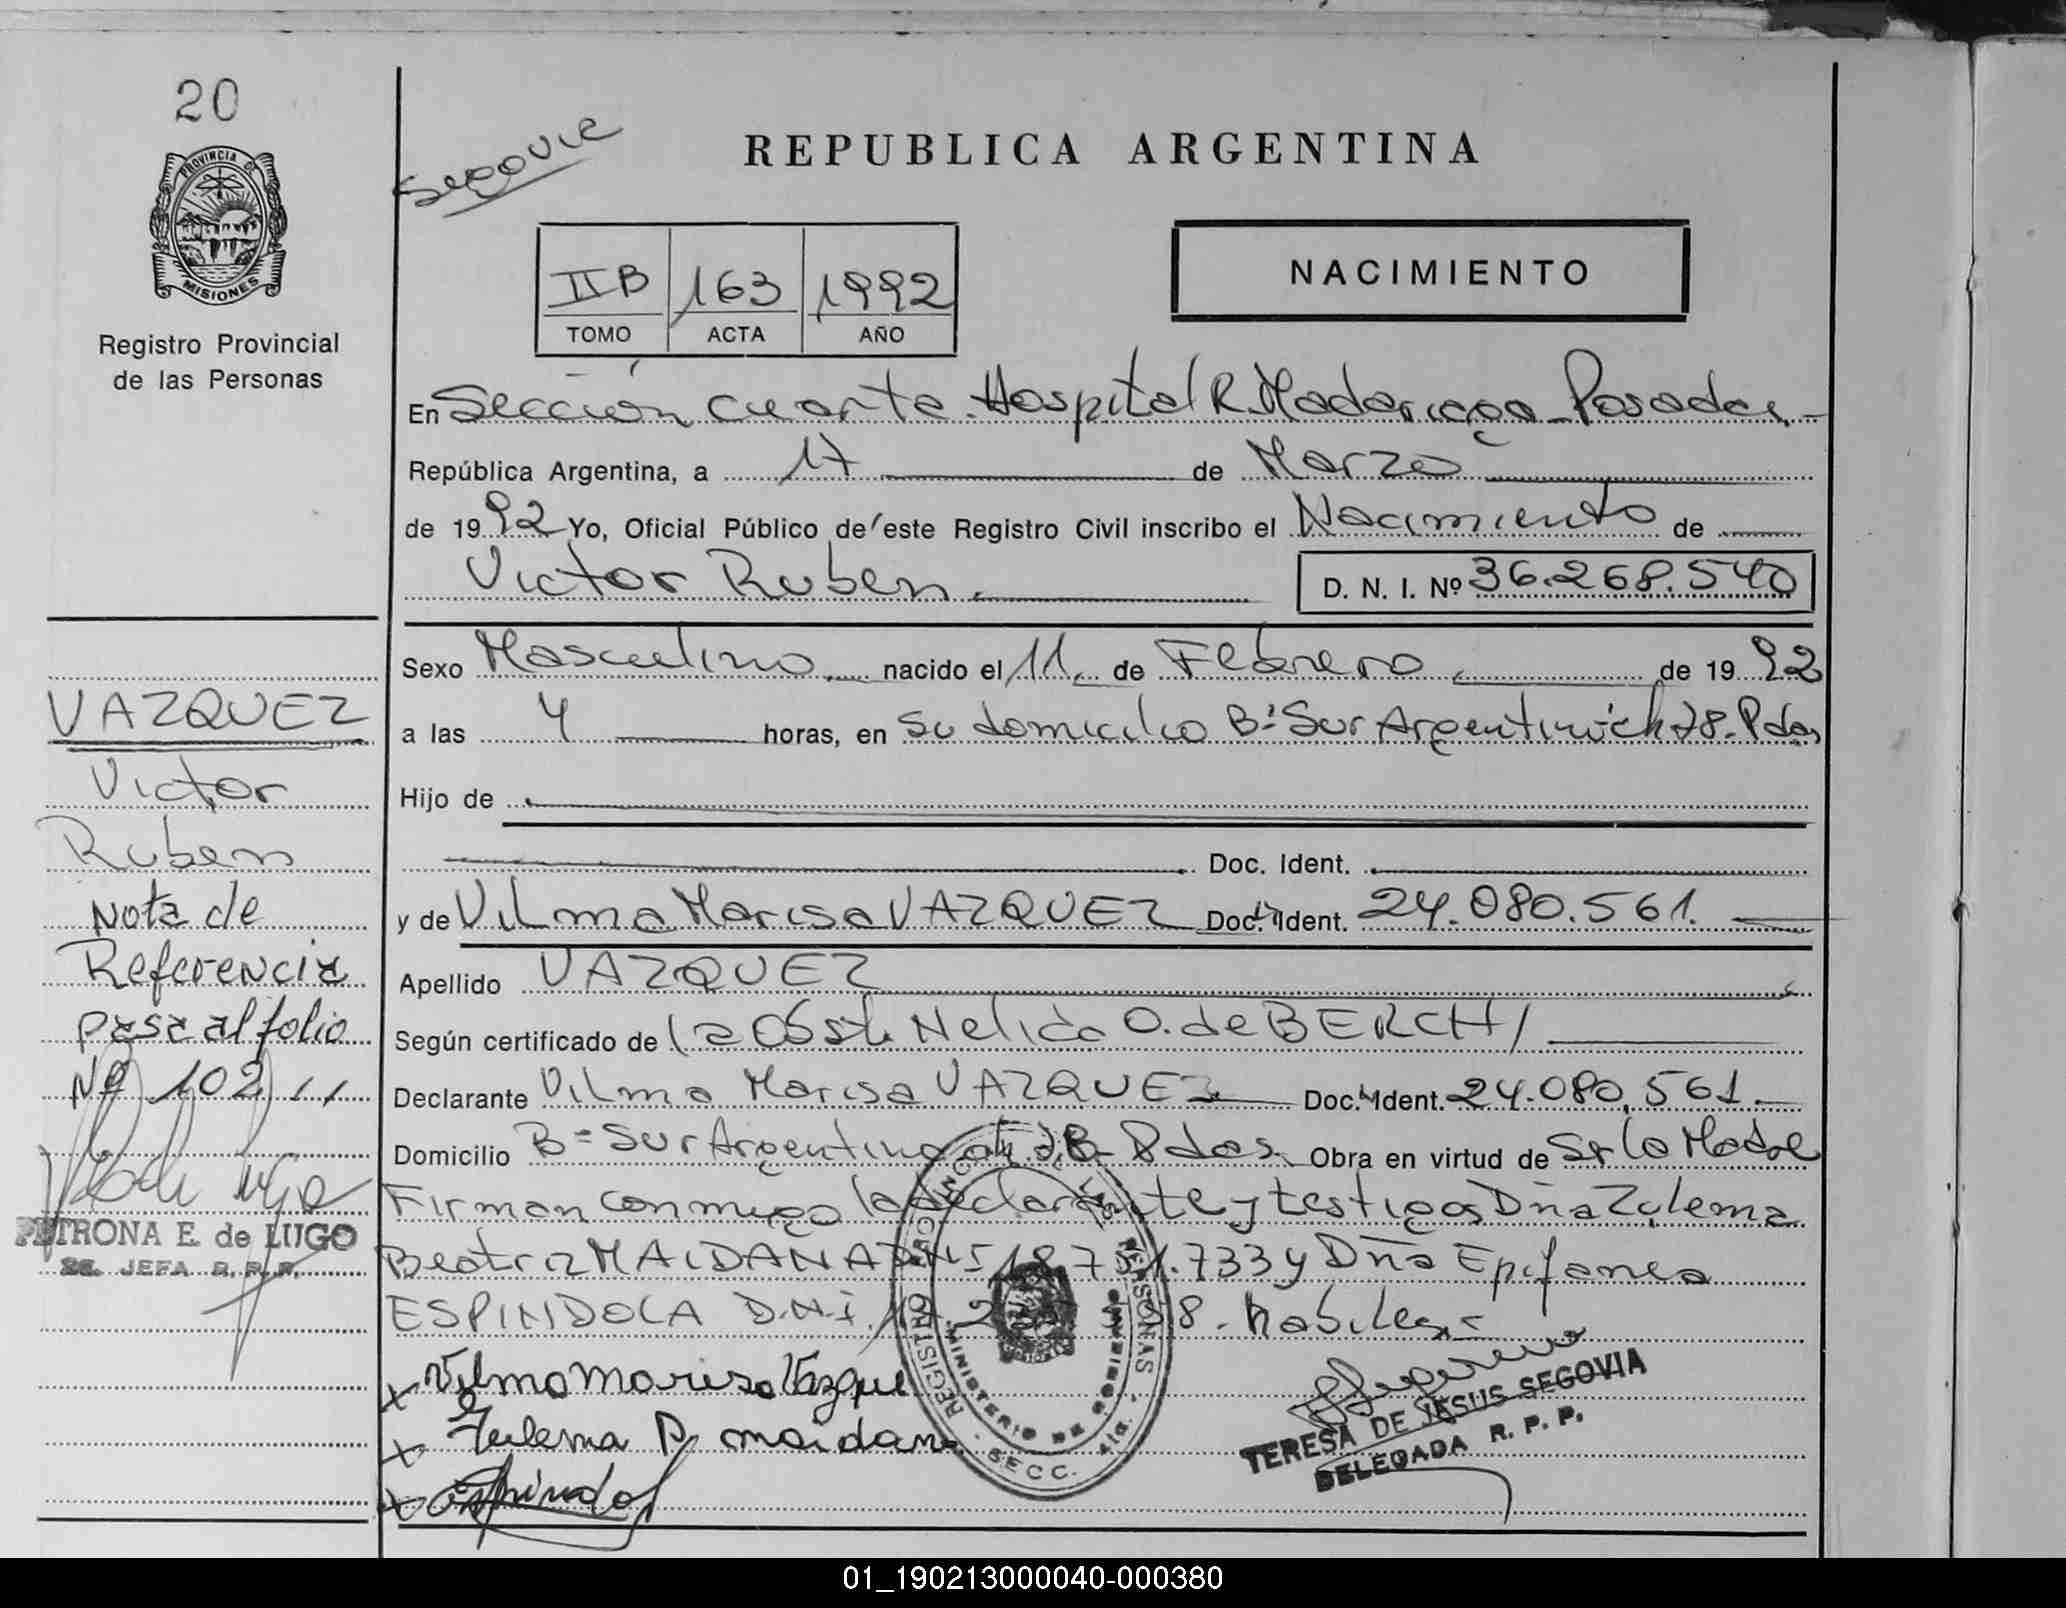 20
PROVINCIA DE
MISIONES
Registro Provincial
de las Personas
Segovia
REPUBLICA ARGENTINA
II B 163 1992
TOMO ACTA AÑO
NACIMIENTO
En Sección cuarta. Hospital R. Madariaga - Posadas.-
República Argentina, a 17 de Marzo
de 1992 Yo, Oficial Público de este Registro Civil inscribo el Nacimiento de
Victor Ruben. D. N. I. Nº 36.268.540
Sexo Masculino, nacido el 11, de Febrero, de 1992
a las 4 horas, en su domicilio Bº Sur Argentino ch 78. Pdas,
Hijo de
Doc. Ident.
y de Vilma Marisa VAZQUEZ Doc. Ident. 24.080.561.
Apellido VAZQUEZ
Según certificado de la Obst. Nelida O. de BERCHI
Declarante Vilma Marisa VAZQUEZ Doc. Ident. 24.080.561.
Domicilio Bº Sur Argentino ch Pdas. Obra en virtud de Ser la Madre
Firman conmigo la declarante y testigos Dña Zulema
Beatriz MAIDANA DNI 18.7 1.733 y Dña Epifania
ESPINDOLA D.N.I. 8. habiles.-
x Vilma Marisa Vazque
x Zulema B maidana
x Espindola
REGISTRO PROVINCIAL DE LAS PERSONAS - SECC. 4ta.
MINISTERIO DE GOBIERNO
TERESA DE JESUS SEGOVIA
DELEGADA R. P. P.
VAZQUEZ
Victor
Ruben
Nota de
Referencia
pasa al folio
Nº 102
PETRONA E. de LUGO
JEFA R.P.P.
01_190213000040-000380